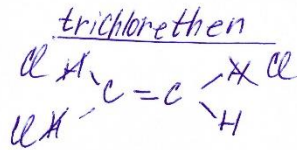 trichlorethen
Cl H H Cl
C = C
Cl H H